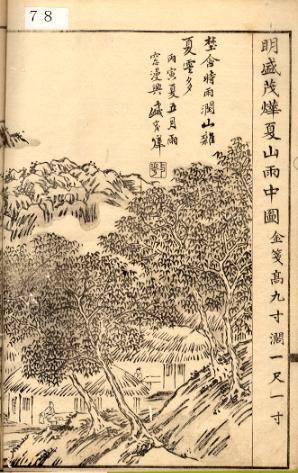 78
明盛茂燁夏山雨中圖 金箋高九寸濶一尺一寸
埜含時雨潤山雜
夏雲多
丙寅夏五月雨
窓漫興 盛茂燁